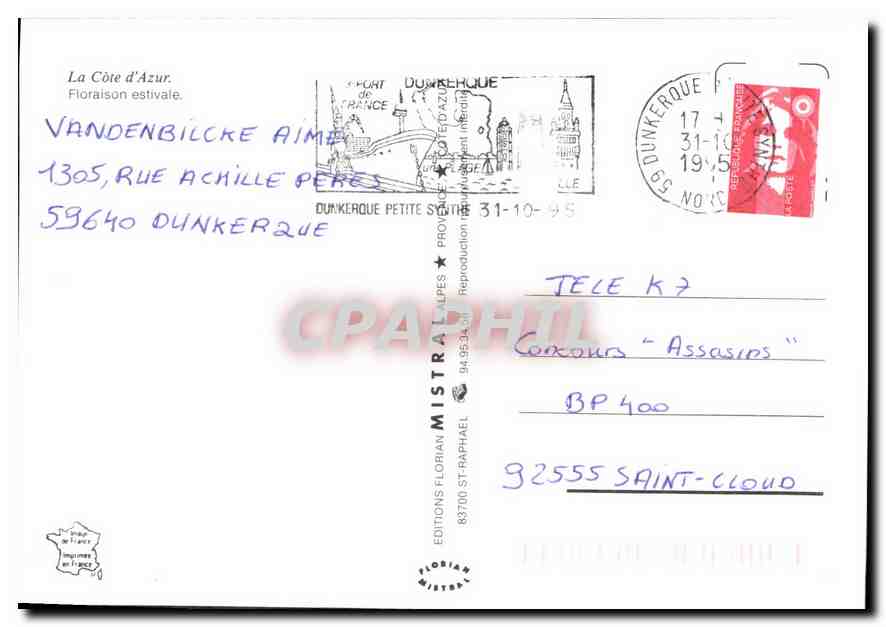 La Côte d'Azur.
Floraison estivale.
VANDENBILCKE AIMÉ
1305, RUE ACHILLE PERES
59640 DUNKERQUE
DUNKERQUE
PORT
de
FRANCE
UNE PLAGE
DUNKERQUE PETITE SYNTHE 31-10-95
59 DUNKERQUE
17 H
31-10
1995
NORD
REPUBLIQUE FRANÇAISE
LA POSTE
TELE K7
Concours "Assasins"
BP 400
92555 SAINT-CLOUD
EDITIONS FLORIAN MISTRAL ALPES ★ PROVENCE ★ COTE D'AZUR
83700 ST-RAPHAEL 94.95.34.58 Reproduction rigoureusement interdite
CPAPHIL
Image
de France
Imprimée
en France
FLORIAN
MISTRAL